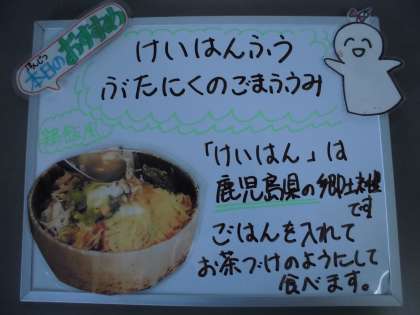 ほんじつ
本日のおすすめ
けいはんふう
ぶたにくのごまふうみ
「けいはん」は
鹿児島県の郷土料理
です
ごはんを入れて
お茶づけのようにして
食べます。